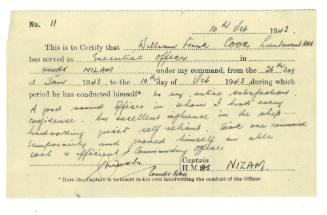 No. 11
10th Oct 1943
This is to Certify that William Frank Cook Lieutenant RAN
has served as Executive Officer in
NIZAM under my command, from the 26th day
of Jan 1943 to the 10th day of Oct 1943 during which
period he has conducted himself* to my entire satisfaction.
A good sound officer in whom I had every
confidence. An excellent influence in the ship
hardworking quiet self-reliant. Took over command
temporarily and proved himself an able
cool & efficient Commanding Officer.
Captain
H.M.A.S NIZAM.
* Here the Captain is to insert in his own handwriting the conduct of the Officer